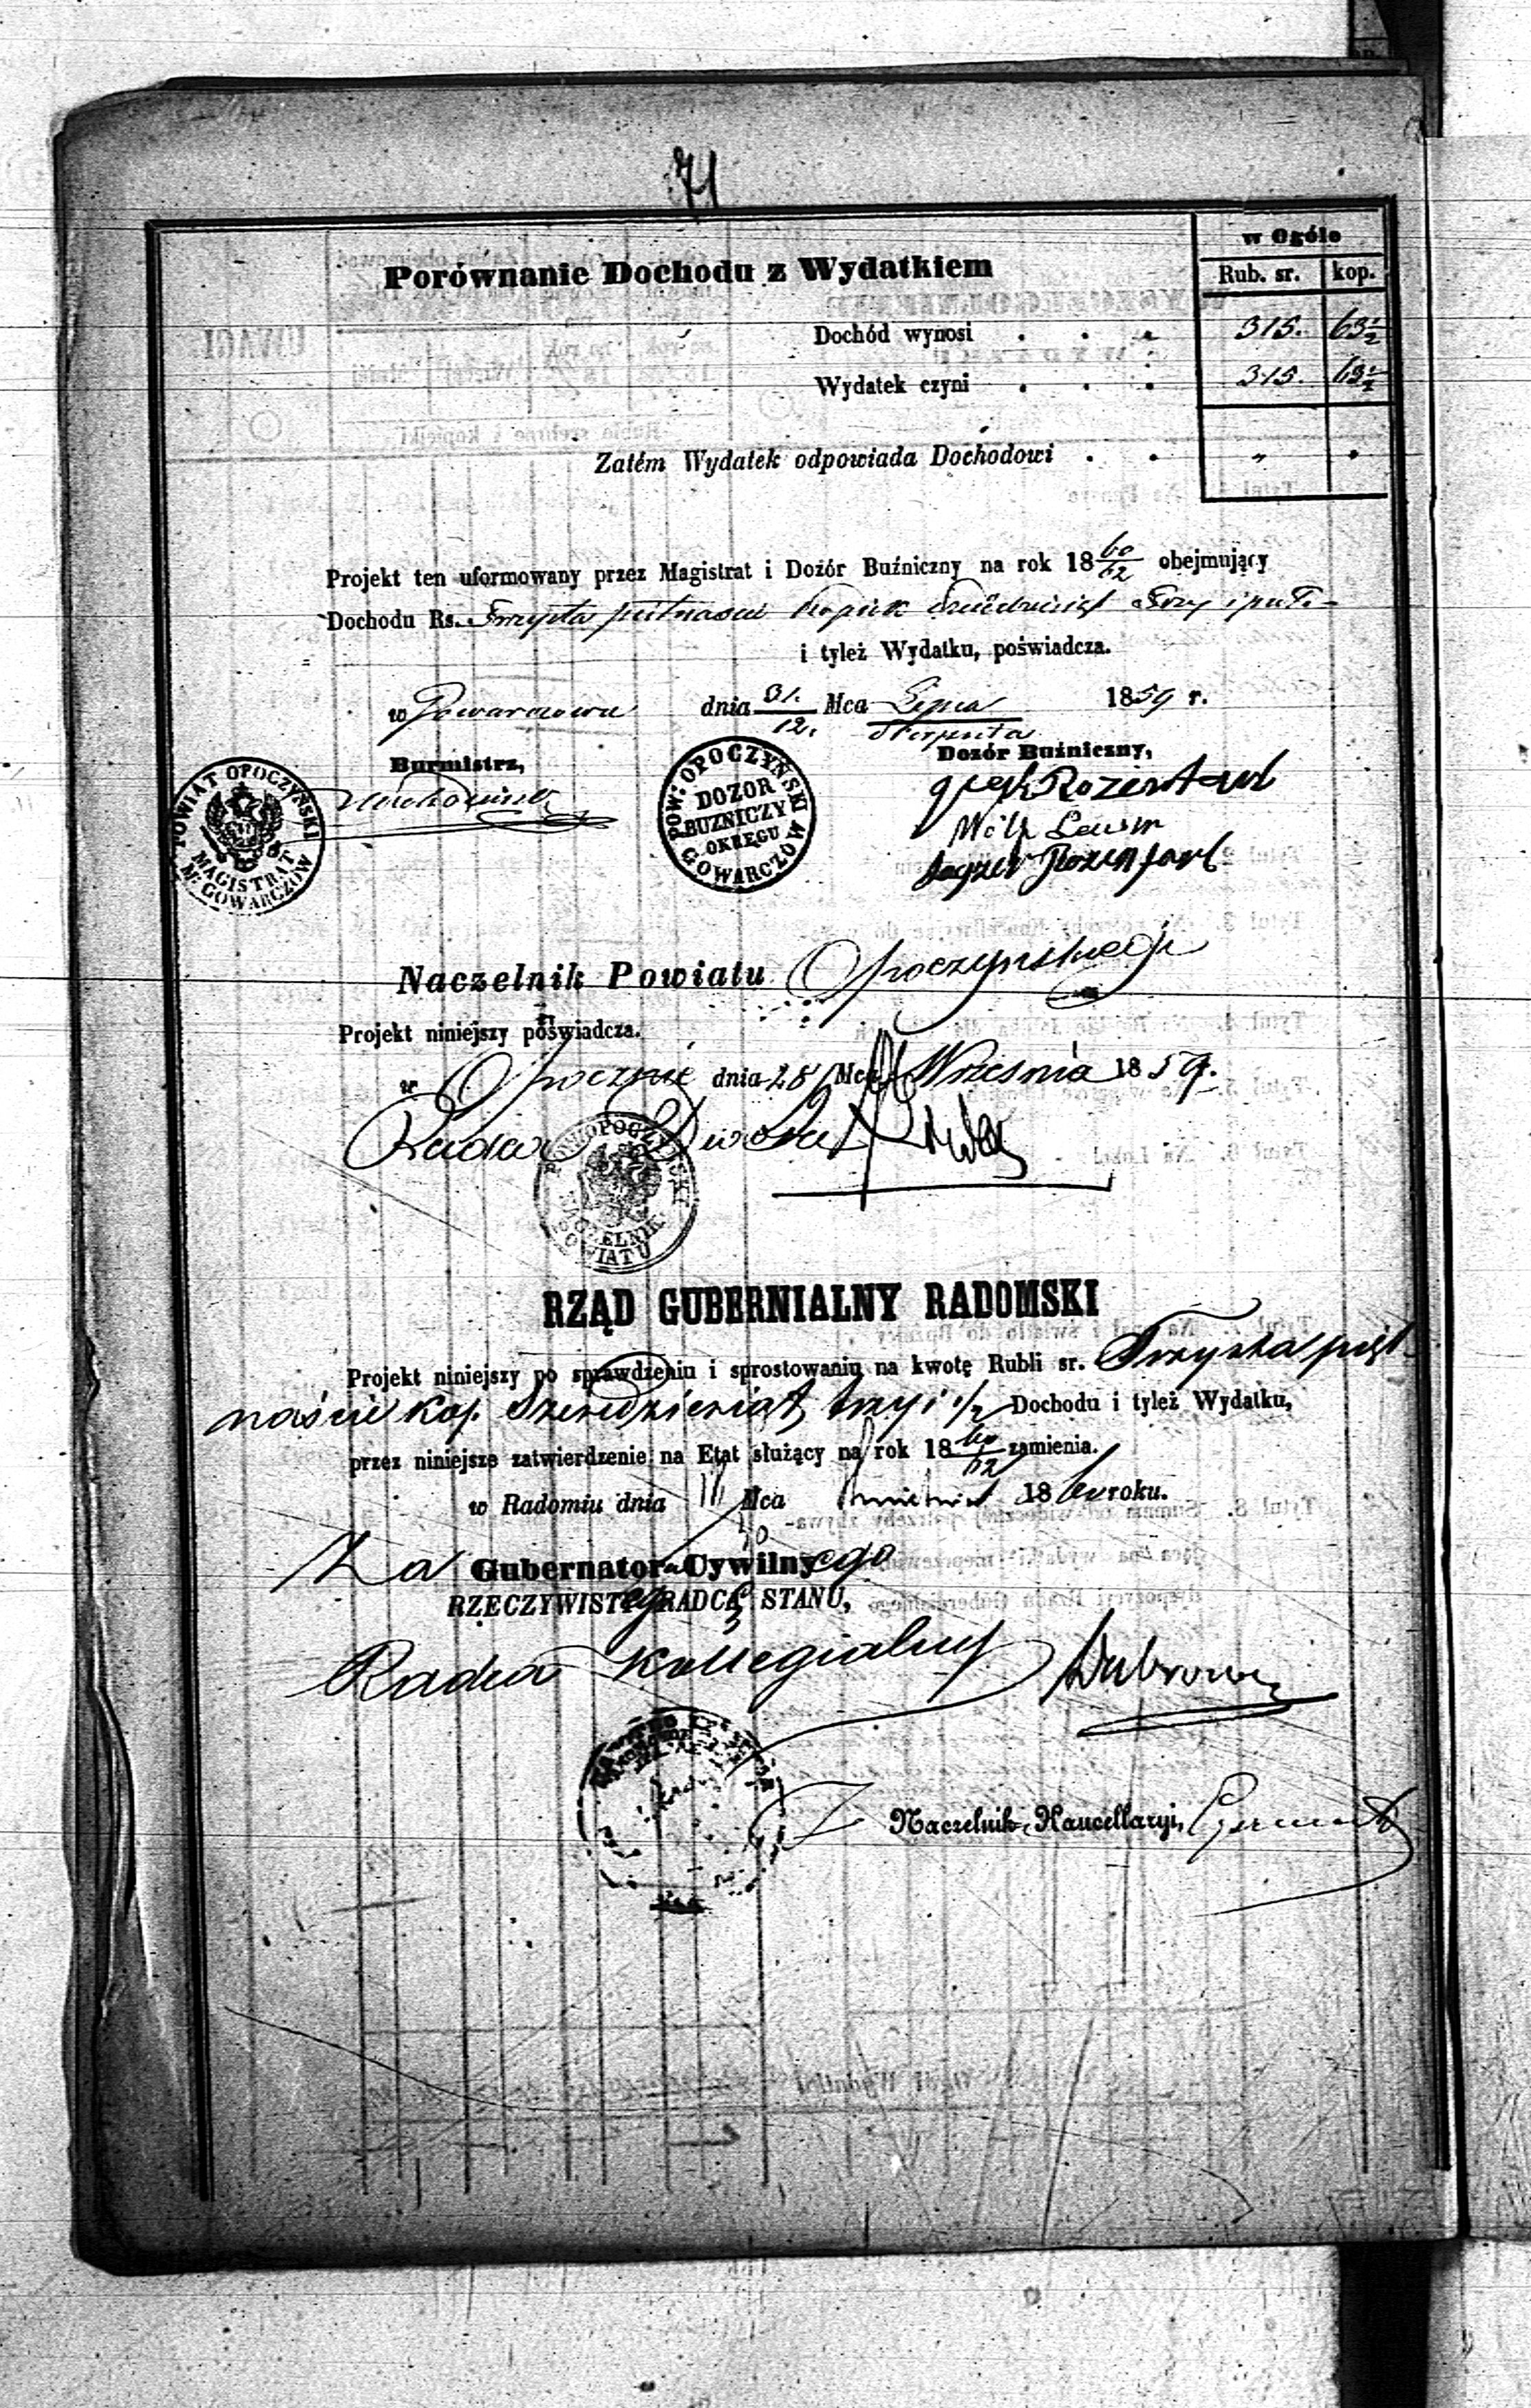 71
w Ogóle
Porównanie Dochodu z Wydatkiem
Rub. sr. kop.
Dochód wynosi . . . 315. 63 1/2
Wydatek czyni . . . 315. 63 1/2
Zatém Wydatek odpowiada Dochodowi . . „ .
Projekt ten uformowany przez Magistrat i Dozór Buźniczny na rok 18 60/62 obejmujący
Dochodu Rs. Trzysta piętnaście kopiek sześćdziesiąt trzy i puł-
i tyleż Wydatku, poświadcza.
w Gowarczowie dnia 31./12. Mca Lipca/Sierpnia 1859 r.
Burmistrz,
Dozór Buźniczny,
POWIAT OPOCZYŃSKI
MAGISTRAT
M. GOWARCZÓW
POW: OPOCZYŃSKI
DOZOR
BUZNICZY
OKRĘGU
GOWARCZÓW
Naczelnik Powiatu Opoczyńskiego
Projekt niniejszy poświadcza.
w Opocznie dnia 28 Mca Września 1859.
Radca Dworu
OPOCZYŃSKI
NACZELNIK
POWIATU
RZĄD GUBERNIALNY RADOMSKI
Projekt niniejszy po sprawdzeniu i sprostowaniu na kwotę Rubli sr. Trzysta pięt-
naście kop. Sześćdziesiąt trzy i 1/2 Dochodu i tyleż Wydatku,
przez niniejsze zatwierdzenie na Etat służący na rok 18 60/62 zamienia.
w Radomiu dnia Mca Kwietnia 1860 roku.
Za Gubernatora Cywilnego
RZECZYWISTY RADCA STANU,
Radca Kollegialny
Naczelnik Kancellaryi,